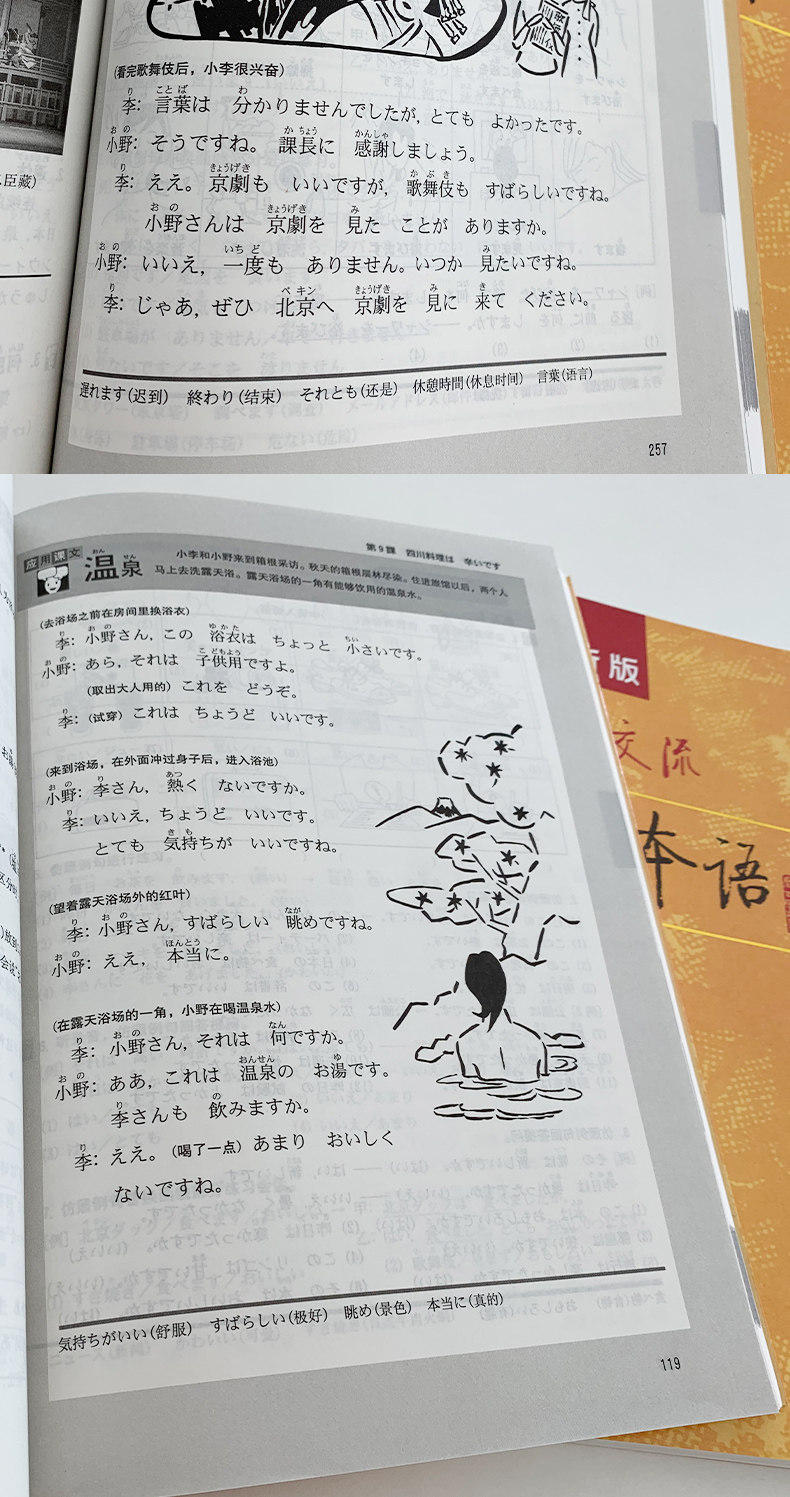 臣藏)
(看完歌舞伎后，小李很兴奋)
李：言葉は 分かりませんでしたが，とても よかったです。
小野：そうですね。 課長に 感謝しましょう。
李：ええ。京劇も いいですが，歌舞伎も すばらしいですね。
小野さんは 京劇を 見た ことが ありますか。
小野：いいえ，一度も ありません。いつか 見たいですね。
李：じゃあ，ぜひ 北京へ 京劇を 見に 来て ください。
遅れます(迟到) 終わり(结束) それとも(还是) 休憩時間(休息时间) 言葉(语言)
257
第9課 四川料理は 辛いです
应用课文 温泉
小李和小野来到箱根采访。秋天的箱根层林尽染。住进旅馆以后，两个人
马上去洗露天浴。露天浴场的一角有能够饮用的温泉水。
(去浴场之前在房间里换浴衣)
李：小野さん，この 浴衣は ちょっと 小さいです。
小野：あら，それは 子供用ですよ。
(取出大人用的) これを どうぞ。
李：(试穿) これは ちょうど いいです。
(来到浴场，在外面冲过身子后，进入浴池)
小野：李さん，熱く ないですか。
李：いいえ，ちょうど いいです。
とても 気持ちが いいですね。
(望着露天浴场外的红叶)
李：小野さん，すばらしい 眺めですね。
小野：ええ，本当に。
(在露天浴场的一角，小野在喝温泉水)
李：小野さん，それは 何ですか。
小野：ああ，これは 温泉の お湯です。
李さんも 飲みますか。
李：ええ。(喝了一点) あまり おいしく
ないですね。
気持ちがいい(舒服) すばらしい(极好) 眺め(景色) 本当に(真的)
119
版
交流
本语